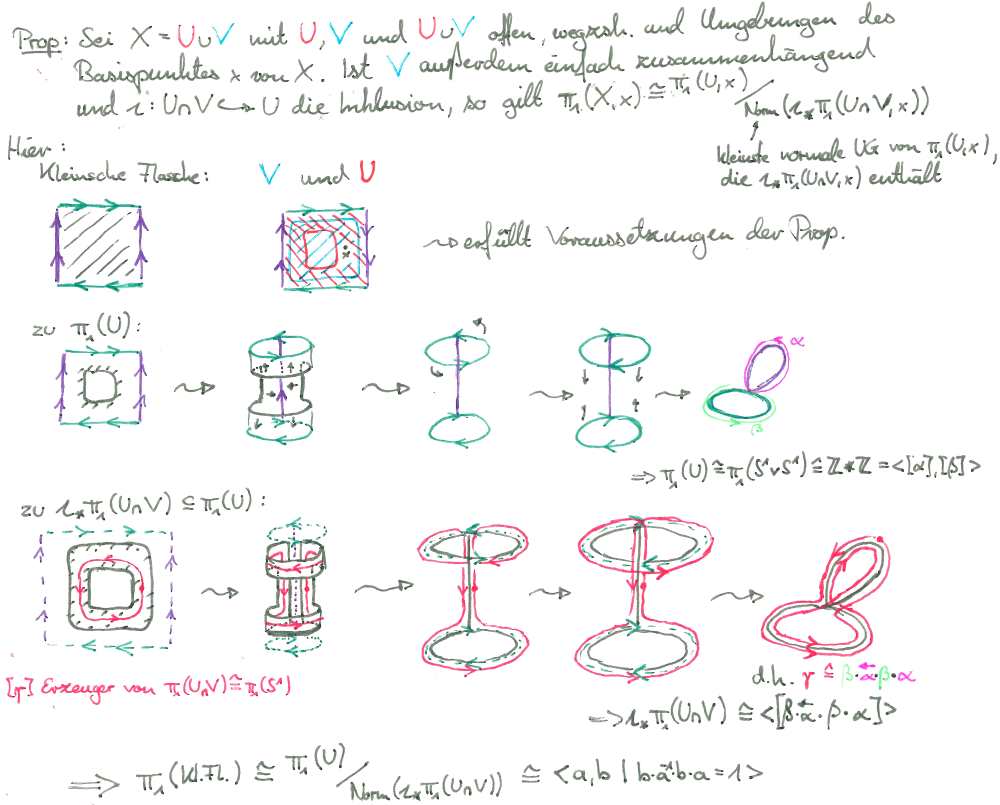 Prop: Sei X = U ∪ V mit U, V und U ∪ V offen, wegzsh. und Umgebungen des
Basispunktes x von X. Ist V außerdem einfach zusammenhängend
und i: U∩V ↪ U die Inklusion, so gilt π₁(X,x) ≅ π₁(U,x) / Norm(i_*π₁(U∩V,x))
kleinste normale UG von π₁(U,x),
die i_*π₁(U∩V,x) enthält
Hier:
Kleinsche Flasche: V und U
x
⇝ erfüllt Voraussetzungen der Prop.
zu π₁(U):
α
β
⇒ π₁(U) ≅ π₁(S¹∨S¹) ≅ ℤ*ℤ = <[α],[β]>
zu i_*π₁(U∩V) ⊆ π₁(U):
[γ] Erzeuger von π₁(U∩V) ≅ π₁(S¹)
d.h. γ ≙ β·α⃖·β·α
⇒ i_*π₁(U∩V) ≅ <[β·α⃖·β·α]>
⇒ π₁(Kl.Fl.) ≅ π₁(U) / Norm(i_*π₁(U∩V)) ≅ <a,b | b·a⁻¹·b·a = 1>